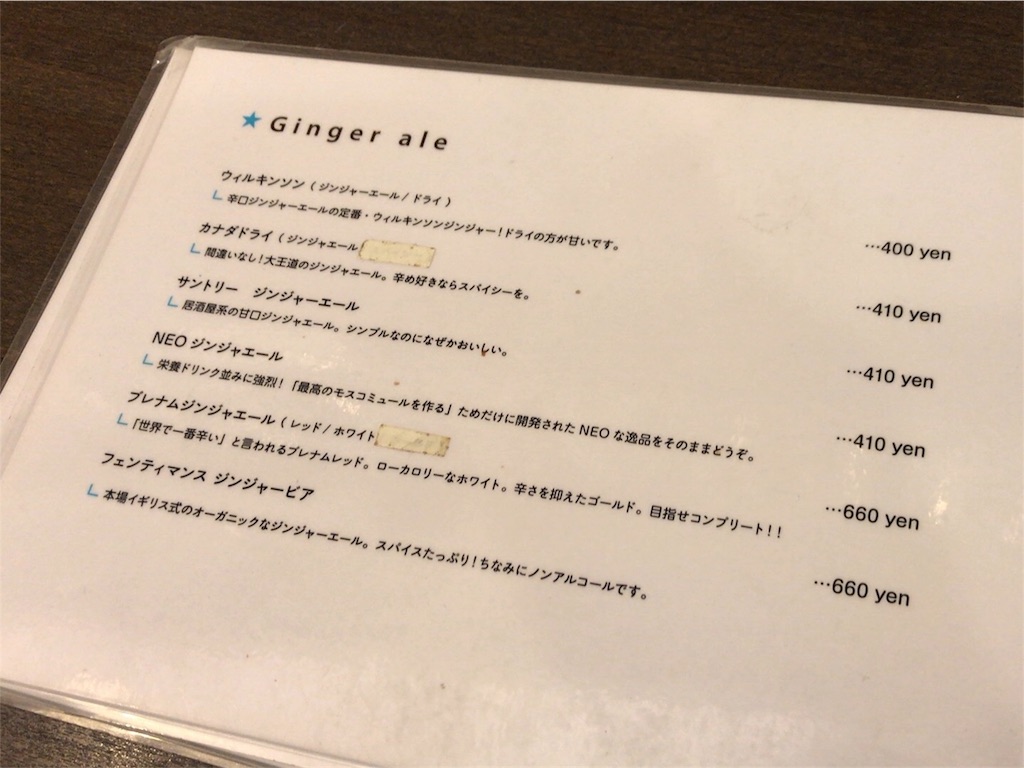 ★Ginger ale
ウィルキンソン ( ジンジャーエール / ドライ ) …400 yen
辛口ジンジャーエールの定番・ウィルキンソンジンジャー！ドライの方が甘いです。
カナダドライ ( ジンジャエール …410 yen
間違いなし！大王道のジンジャエール。辛め好きならスパイシーを。
サントリー　ジンジャーエール …410 yen
居酒屋系の甘口ジンジャエール。シンプルなのになぜかおいしい。
NEO ジンジャエール …410 yen
栄養ドリンク並みに強烈！「最高のモスコミュールを作る」ためだけに開発された NEO な逸品をそのままどうぞ。
ブレナムジンジャエール ( レッド / ホワイト …660 yen
「世界で一番辛い」と言われるブレナムレッド。ローカロリーなホワイト。辛さを抑えたゴールド。目指せコンプリート！！
フェンティマンス ジンジャービア …660 yen
本場イギリス式のオーガニックなジンジャーエール。スパイスたっぷり！ちなみにノンアルコールです。